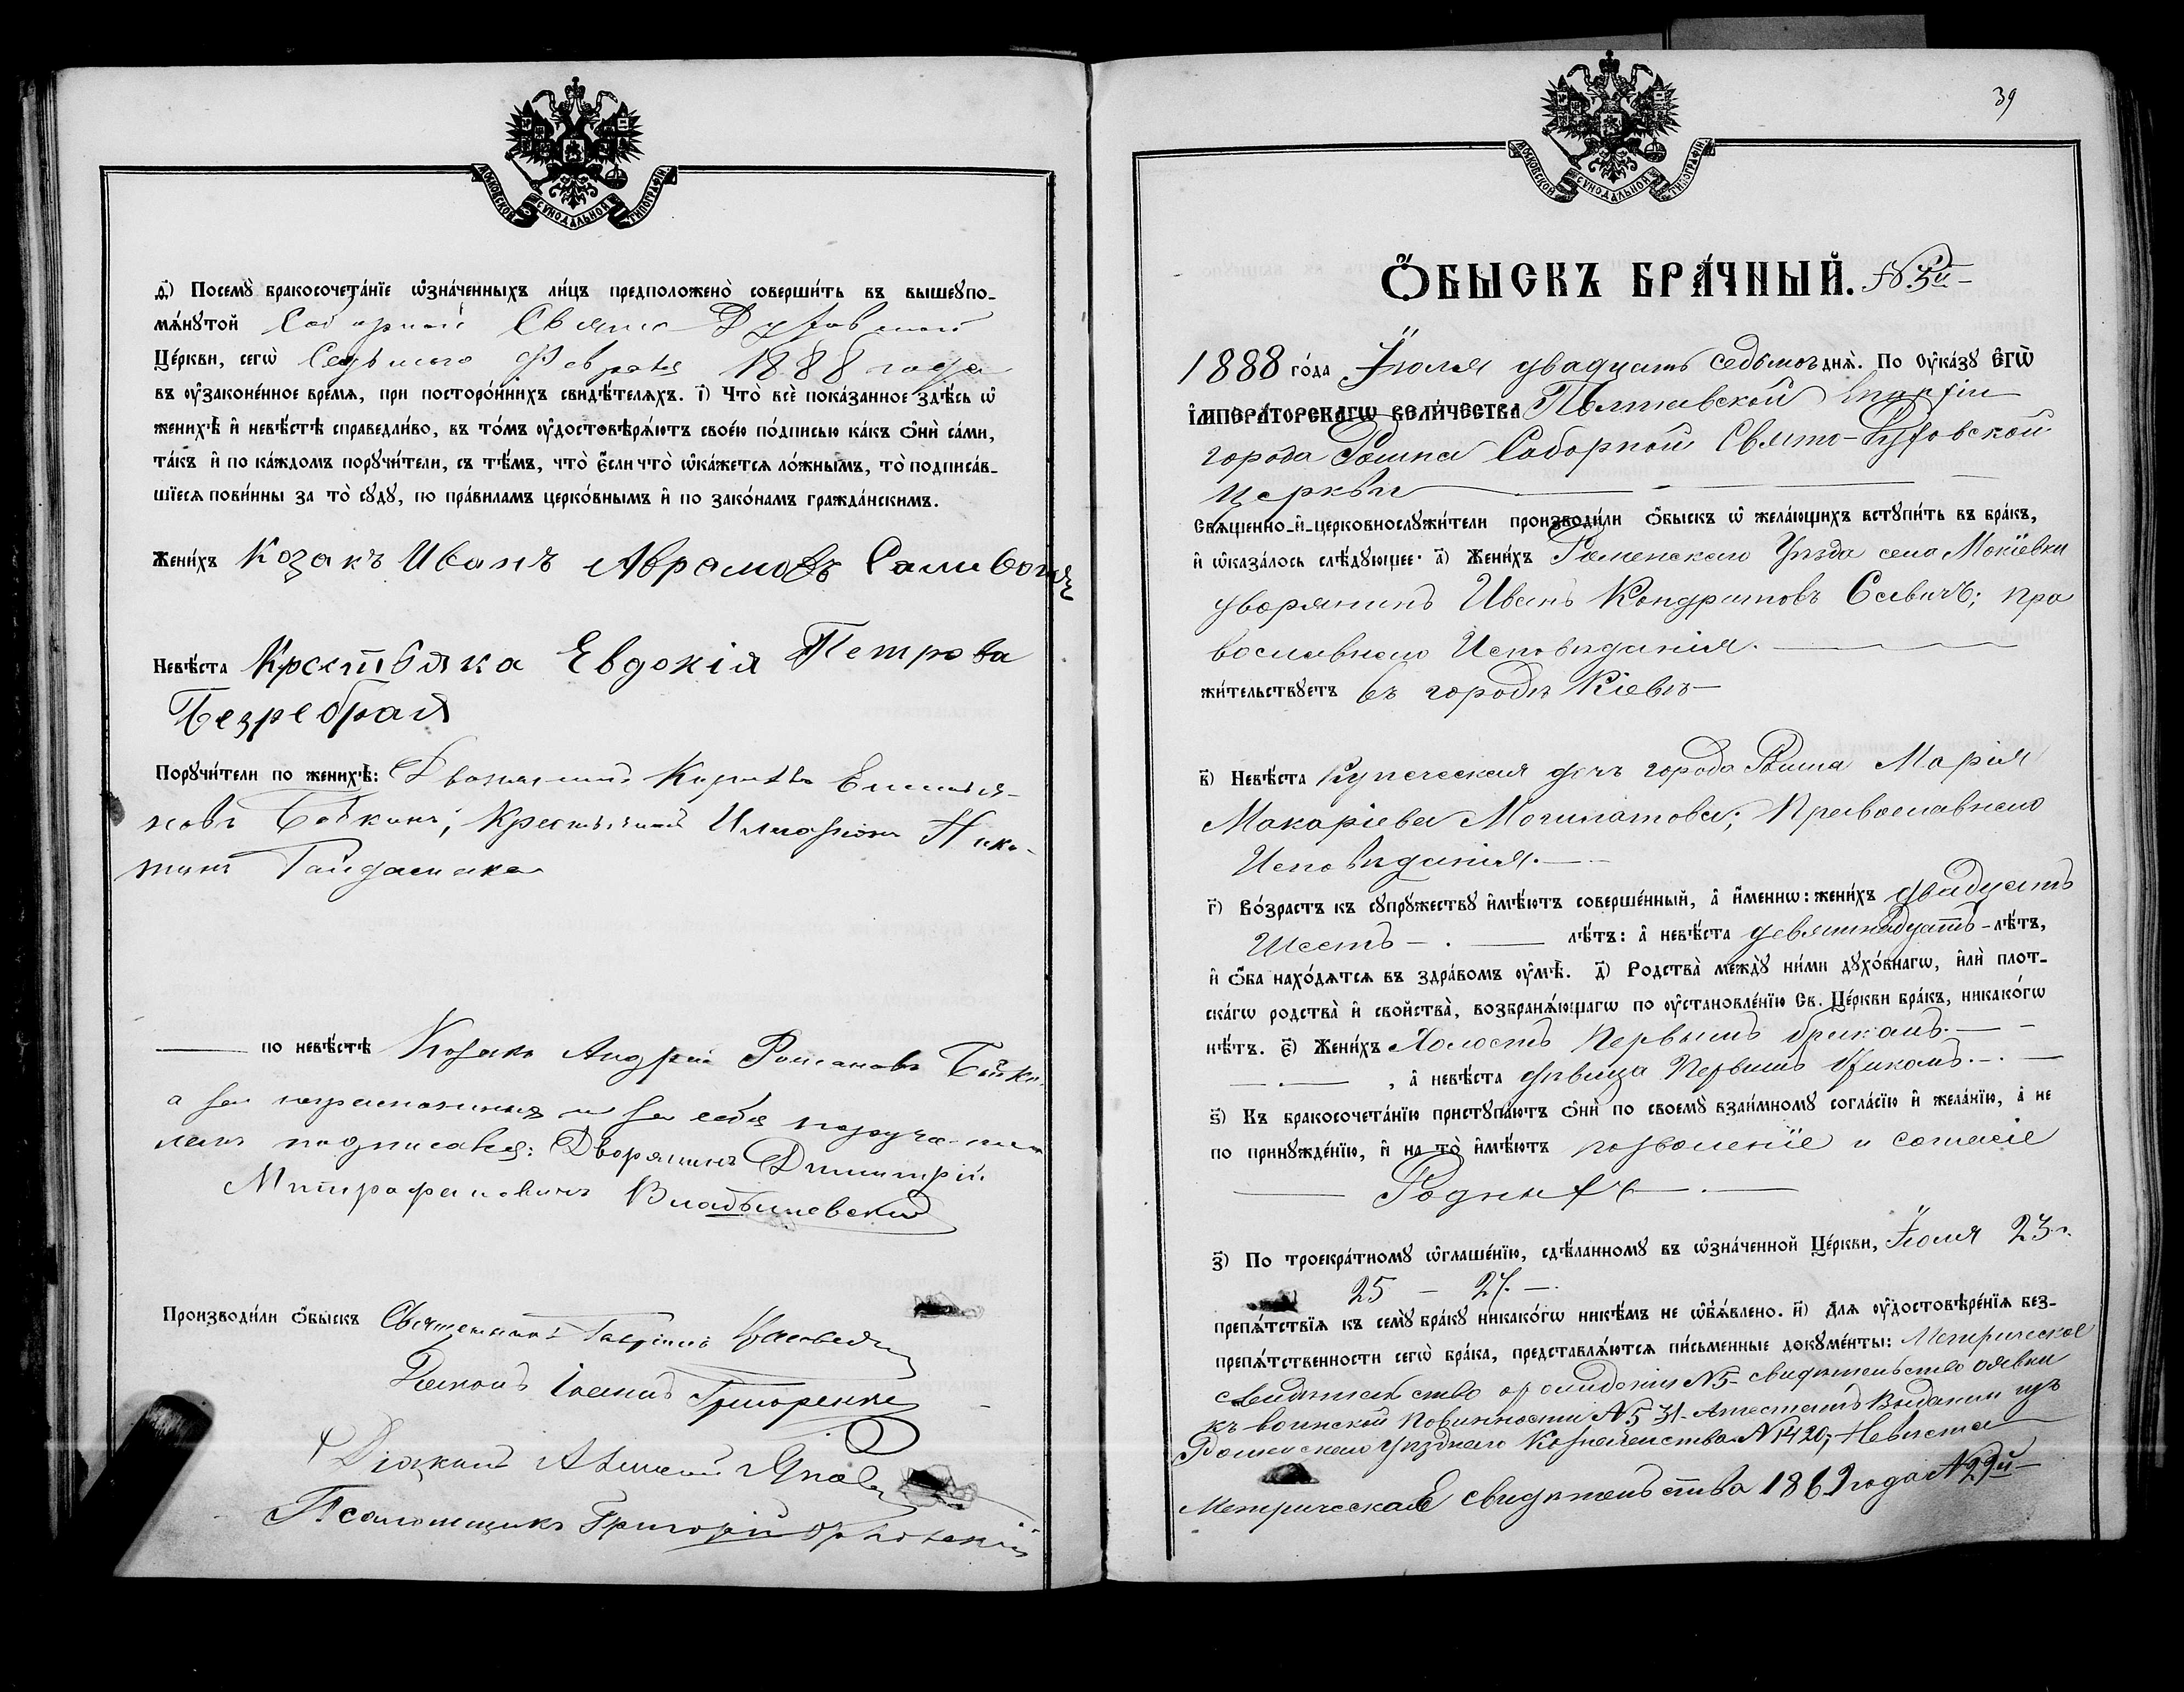 МОСКОВСКОЙ СѴНОДАЛЬНОЙ ТИПОГРАФІИ
д҃і) Посемꙋ̀ бракосочета́нїе ѡ҆зна́ченныхъ ли́цъ предположено̀ соверши́ть въ вышеꙋпо-
мѧ́нꙋтой Соборной Свято Духовской
Це́ркви, сегѡ̀ Седьмого Февраля 1888 года
въ ᲂу҆законе́нное вре́мѧ, при посторо́ннихъ свидѣ́телѧхъ. і҃) Что̀ всѐ пока́занное здѣ́сь ѡ҆
женихѣ̀ и҆ невѣ́стѣ справедли́во, въ то́мъ ᲂу҆достовѣрѧ́ютъ свое́ю по́дписью ка́къ ѻ҆нѝ са́ми,
та́къ и҆ по ка́ждомъ порꙋчи́тели, съ тѣ́мъ, что̀ є҆́сли что̀ ѡ҆ка́жетсѧ ло́жнымъ, то̀ подписа́в-
шїесѧ пови́нны за то̀ сꙋдꙋ̀, по пра́виламъ церко́внымъ и҆ по зако́намъ гражда́нскимъ.
Жени́хъ Козакъ Иванъ Аврамовъ
Невѣ́ста Крестьянка Евдокія Петрова
Безребрая
Порꙋчи́тели по женихѣ̀: Дворянинъ Емелья-
новъ Бабкинъ; Крестьянинъ Иларіонъ Ники-
тинъ Гайдамака
по невѣ́стѣ Козакъ Андрей Романовъ
а за неграмотныхъ и за себя поручи-
лемъ подписался: Дворянинъ Димитрій
Митрофановичъ
Производи́ли ѻ҆́быскъ Священникъ
Діаконъ Іоаннъ Григоренко
Діаконъ
Псаломщикъ Григорій
39
МОСКОВСКОЙ СѴНОДАЛЬНОЙ ТИПОГРАФІИ
Ѻ҆́БЫСКЪ БРА́ЧНЫЙ. №. 5й
1888 го́да Іюля двадцать седьмого днѧ̀. По ᲂу҆ка́зꙋ Є҆ГѠ̀
І҆МПЕРА́ТОРСКАГѠ ВЕЛИ́ЧЕСТВА Полтавской Епархіи
города Ромна Соборной Свято-Духовской
церкви
Свѧще́нно-и҆-церковнослꙋжи́тели производи́ли ѻ҆́быскъ ѡ҆ жела́ющихъ встꙋпи́ть въ бра́къ,
и҆ ѡ҆каза́лось слѣ́дꙋющее: а҃) Жени́хъ Роменскаго Уѣзда села Мокіевки
дворянинъ Иванъ Кондратовъ Савичъ; пра
вославнаго Исповѣданія.
жи́тельствꙋетъ въ городѣ Кіевѣ
в҃) Невѣ́ста Купеческая дочь города Ромна Марія
Макаріева Могилатова; Православнаго
Исповѣданія.
г҃) Во́зрастъ къ сꙋпрꙋ́жествꙋ и҆мѣ́ютъ соверше́нный, а҆ и҆́меннѡ: жени́хъ двадцать
Шесть лѣ́тъ: а҆ невѣ́ста девятнадцать лѣ́тъ,
и҆ ѻ҆́ба нахо́дѧтсѧ въ здра́вомъ ᲂу҆мѣ̀. д҃) Родства̀ междꙋ̀ ни́ми дꙋхо́внагѡ, и҆лѝ плот-
ска́гѡ родства̀ и҆ свойства̀, возбранѧ́ющагѡ по ᲂу҆становле́нїю Св. Це́ркви бра́къ, никако́гѡ
нѣ́тъ. є҃) Жени́хъ Холостъ Первымъ бракомъ.
, а҆ невѣ́ста дѣвица Первымъ бракомъ.
ѕ҃) Къ бракосочета́нїю пристꙋпа́ютъ ѻ҆нѝ по своемꙋ̀ взаи́мномꙋ согла́сїю и҆ жела́нїю, а҆ не
по принꙋжде́нїю, и҆ на то̀ и҆мѣ́ютъ позволеніе и согласіе
Родныхъ
з҃) По троекра́тномꙋ ѡ҆глаше́нїю, сдѣ́ланномꙋ въ ѡ҆зна́ченной Це́ркви, Іюля 23.
25 — 27. —
препѧ́тствїѧ къ семꙋ̀ бра́кꙋ никако́гѡ никѣ́мъ не ѡ҆бъѧ́влено. и҃) Длѧ ᲂу҆достовѣре́нїѧ без-
препѧ́тственности сегѡ̀ бра́ка, представлѧ́ютсѧ пи́сьменные докꙋме́нты: Метрическое
свидѣтельство о рожденіи №5 свидѣтельство о явки
къ воинской повинности №531. Аттестатъ Выданый изъ
Роменскаго уѣзднаго Казначейства №1420; Невѣста
Метрическае свидѣтельства 1869 года №29й